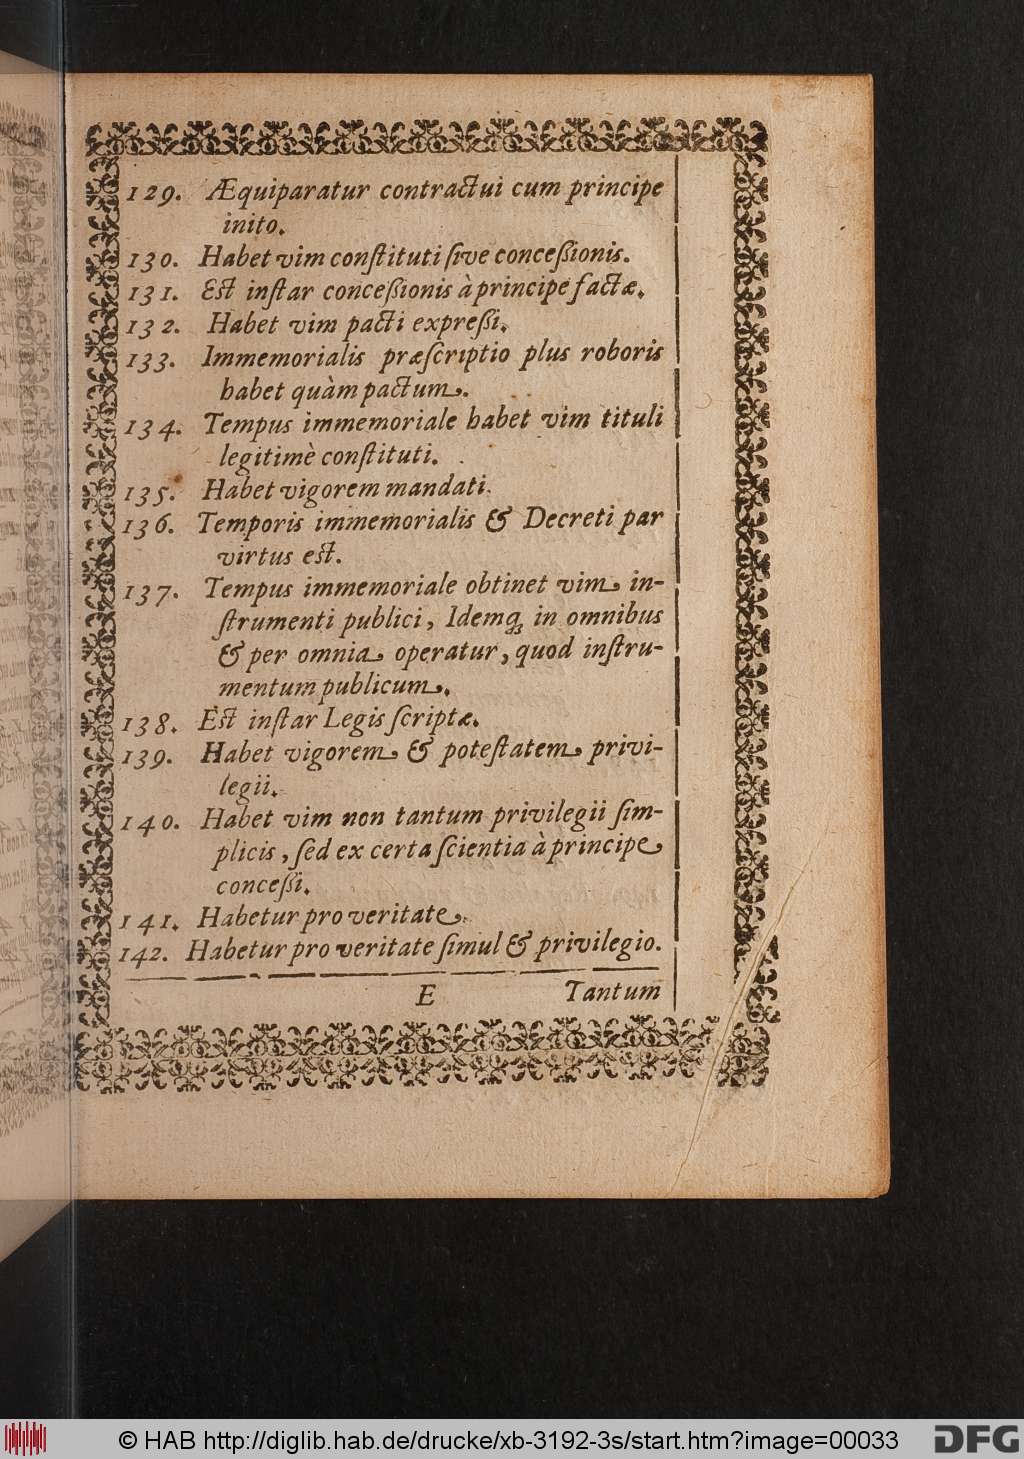 129. Æquiparatur contractui cum principe
inito.
130. Habet vim conſtituti ſive conceßionis.
131. Est inſtar conceßionis à principe factæ.
132. Habet vim pacti expreßi.
133. Immemorialis præſcriptio plus roboris
habet quàm pactum.
134. Tempus immemoriale habet vim tituli
legitimè conſtituti.
135. Habet vigorem mandati.
136. Temporis immemorialis & Decreti par
virtus est.
137. Tempus immemoriale obtinet vim in-
ſtrumenti publici, Idemq; in omnibus
& per omnia operatur, quod inſtru-
mentum publicum.
138. Est inſtar Legis ſcriptæ.
139. Habet vigorem & poteſtatem privi-
legii.
140. Habet vim non tantum privilegii ſim-
plicis, ſed ex certa ſcientia à principe
conceßi.
141. Habetur pro veritate.
142. Habetur pro veritate ſimul & privilegio.
E Tantum
© HAB http://diglib.hab.de/drucke/xb-3192-3s/start.htm?image=00033
DFG